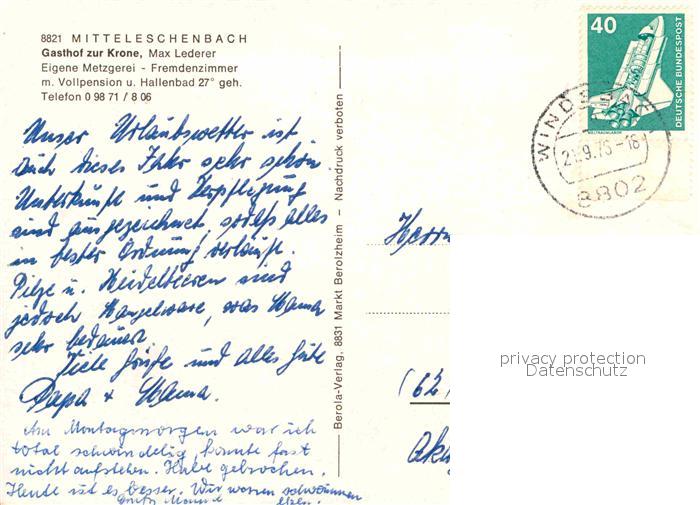 8821 MITTELESCHENBACH
Gasthof zur Krone, Max Lederer
Eigene Metzgerei - Fremdenzimmer
m. Vollpension u. Hallenbad 27° geh.
Telefon 0 98 71 / 8 06
Unser Urlaubswetter ist
auch dieses Jahr sehr schön
Unterkünfte und Verpflegung
sind ausgezeichnet, sodaß alles
in bester Ordnung verläuft.
Pilze u. Heidelbeeren sind
jedoch Mangelware, was Mama
sehr bedauert.
Viele Grüße und alles Gute
Papa + Mama.
Am Montagmorgen war ich
total schwindelig, konnte fast
nicht aufstehen. Habe gebrochen.
Heute ist es besser. Wir waren schwimmen
Berola-Verlag, 8831 Markt Berolzheim - Nachdruck verboten
40
DEUTSCHE BUNDESPOST
WELTRAUMLABOR
9.75-18
8802
Herrn
(62)
privacy protection
Datenschutz